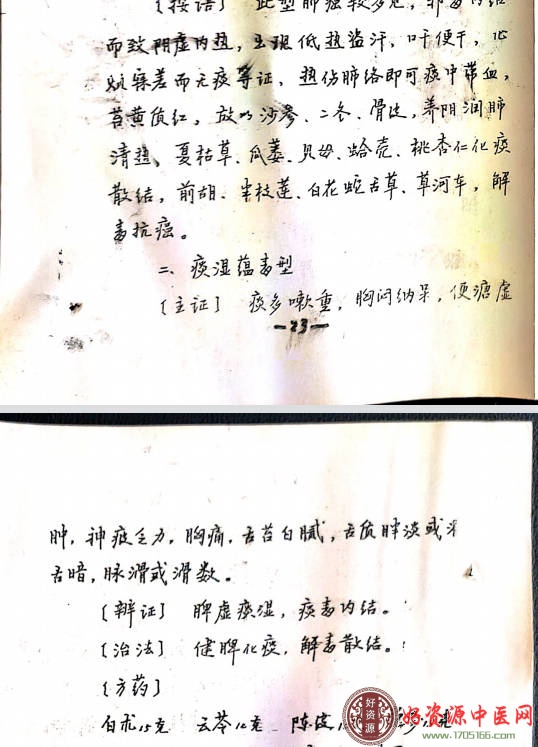 〔按语〕 此型肺癌较多见,
而致阴虚内热,出现低热盗汗,口干便干,心
烦寐差而无痰等证,热伤肺络即可痰中带血,
苔黄质红,故以沙参、二冬、骨皮,养阴润肺
清热,夏枯草、瓜蒌、贝母、蛤壳、桃杏仁化痰
散结,前胡、半枝莲、白花蛇舌草、草河车,解
毒抗癌。
二、痰湿蕴毒型
〔主证〕 痰多嗽重,胸闷纳呆,便溏虚
—23—
肿,神疲乏力,胸痛,舌苔白腻,舌质胖淡或
舌暗,脉滑或滑数。
〔辨证〕 脾虚痰湿,痰毒内结。
〔治法〕 健脾化痰,解毒散结。
〔方药〕
白术15克 云苓12克 陈皮
好资源
好资源中医网
www.1705166.com